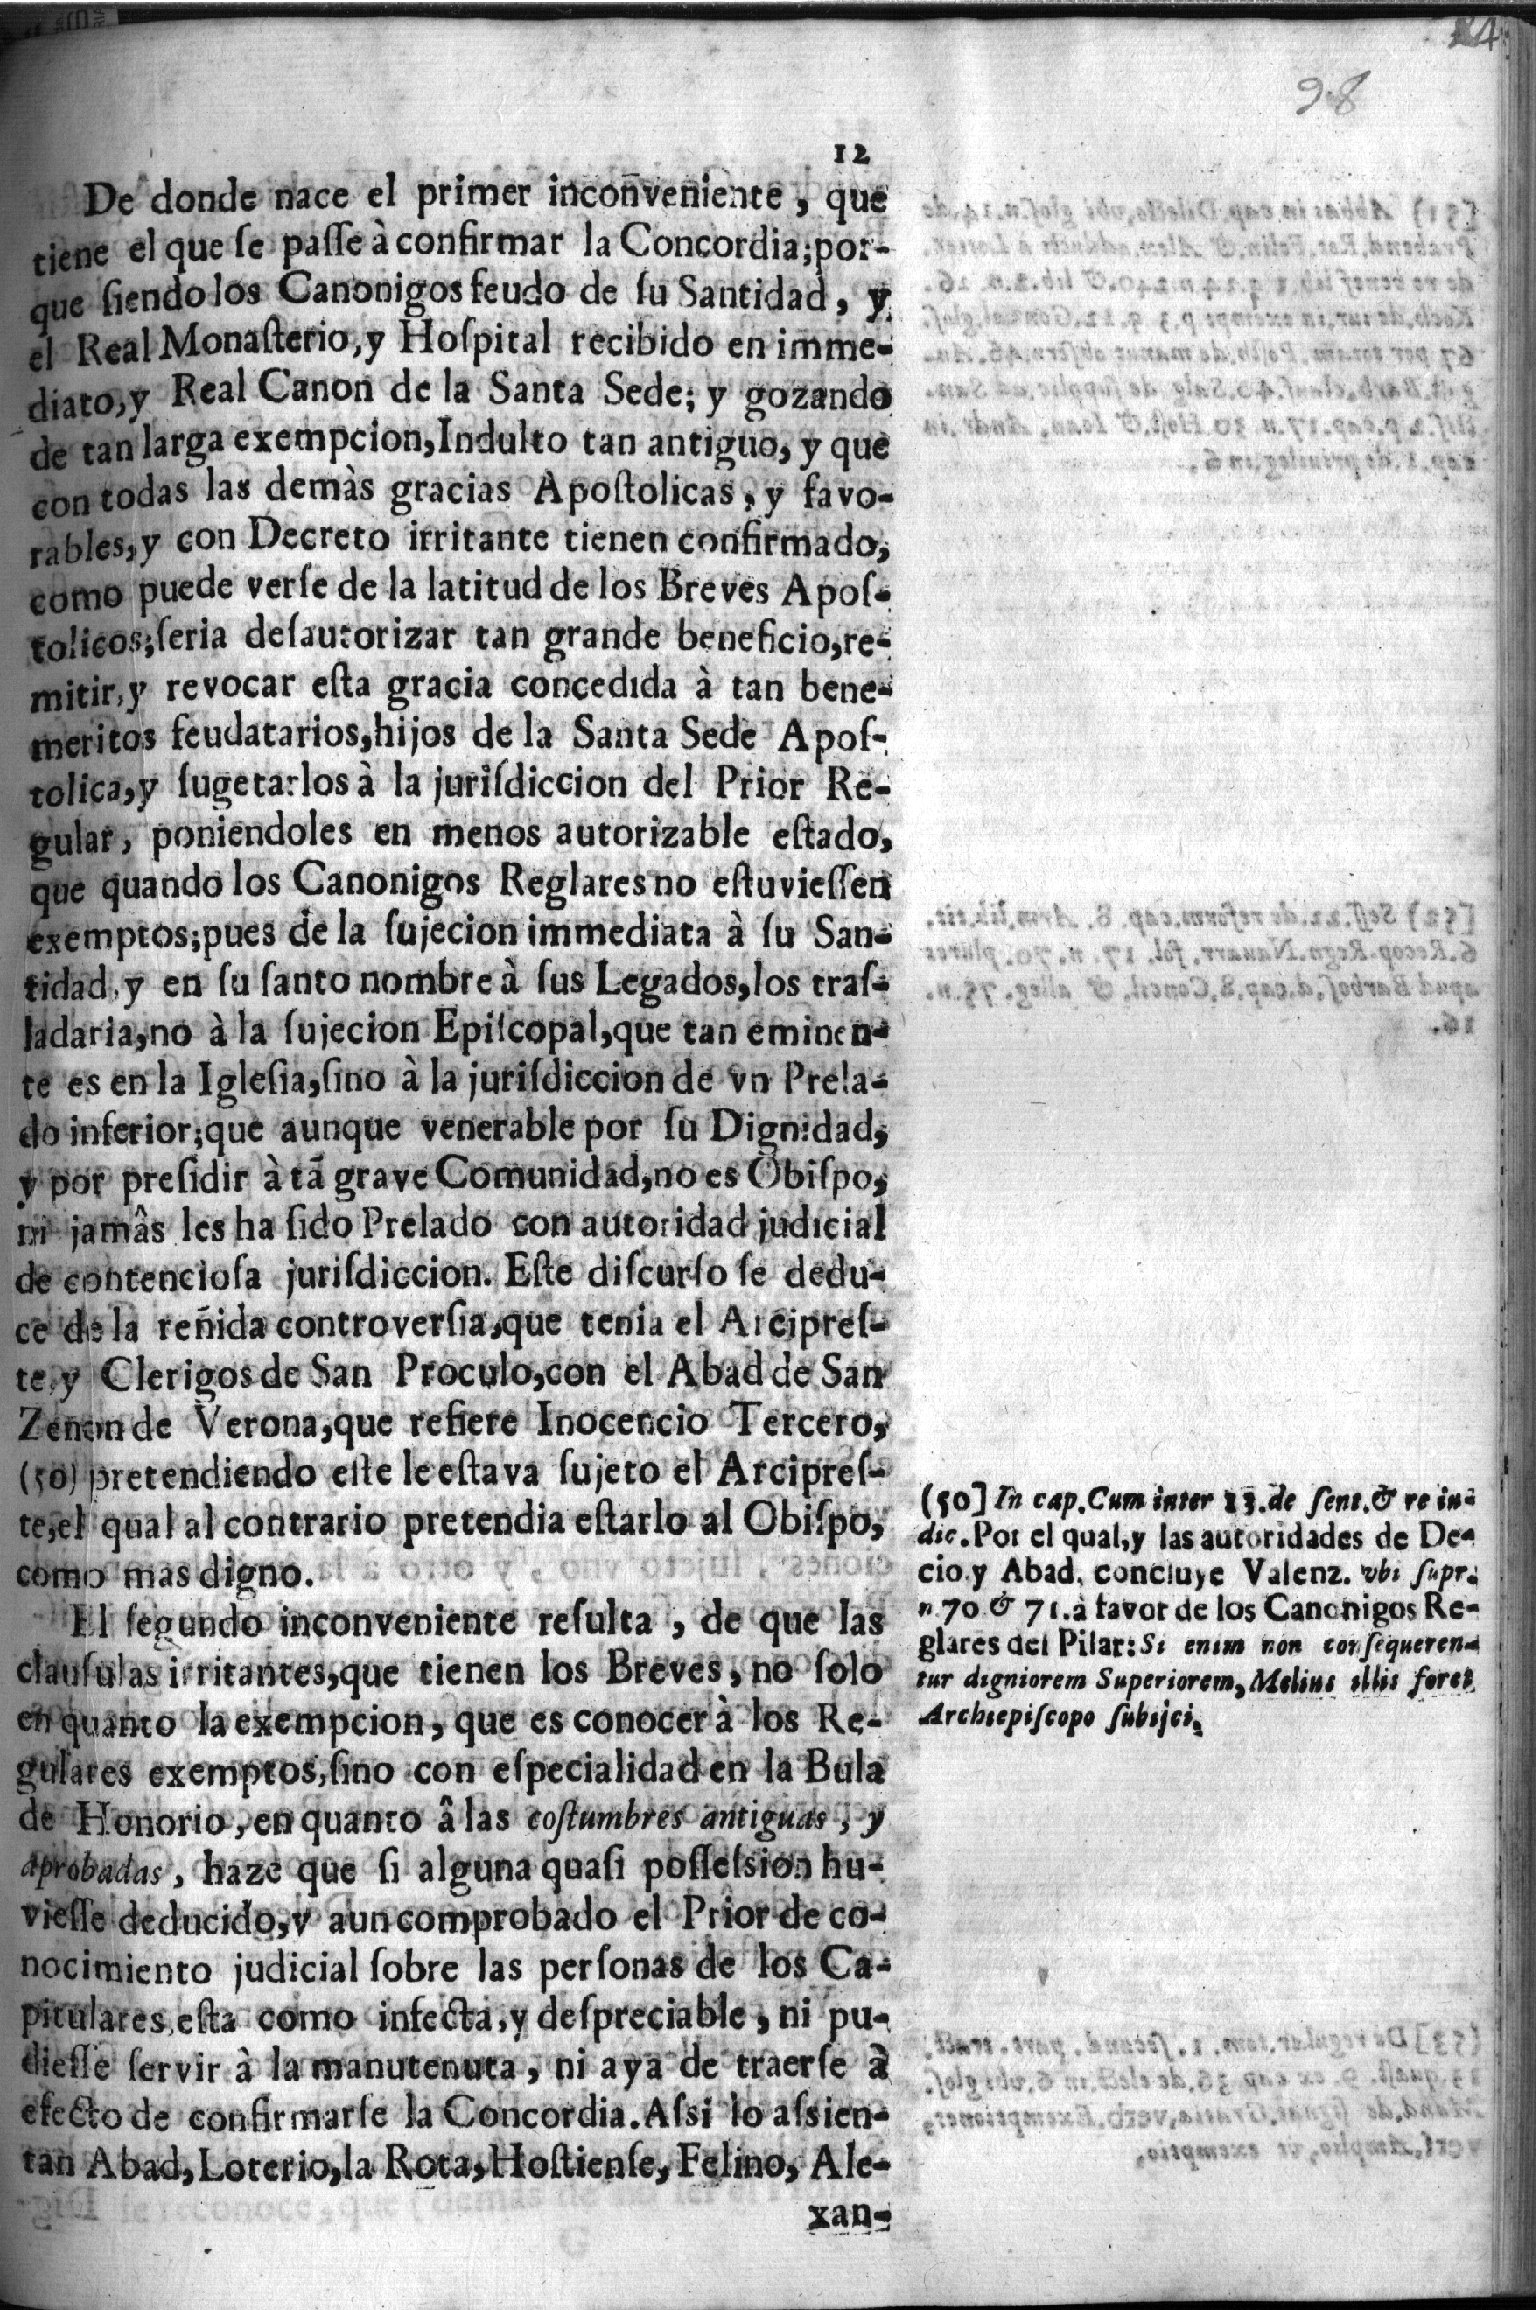 98
12
De donde nace el primer inconveniente, que
tiene el que ſe paſſe à confirmar la Concordia; por-
que ſiendo los Canonigos feudo de ſu Santidad, y
el Real Monaſterio, y Hoſpital recibido en imme-
diato, y Real Canon de la Santa Sede; y gozando
de tan larga exempcion, Indulto tan antiguo, y que
con todas las demàs gracias Apoſtolicas, y favo-
rables, y con Decreto irritante tienen confirmado,
como puede verſe de la latitud de los Breves Apoſ-
tolicos; ſeria deſautorizar tan grande beneficio, re-
mitir, y revocar eſta gracia concedida à tan bene-
meritos feudatarios, hijos de la Santa Sede Apoſ-
tolica, y ſugetarlos à la juriſdiccion del Prior Re-
gular, poniendoles en menos autorizable eſtado,
que quando los Canonigos Reglares no eſtuvieſſen
exemptos; pues de la ſujecion immediata à ſu San-
tidad, y en ſu ſanto nombre à ſus Legados, los traſ-
ladaria, no à la ſujecion Epiſcopal, que tan eminen-
te es en la Igleſia, ſino à la juriſdiccion de vn Prela-
do inferior; que aunque venerable por ſu Dignidad,
y por preſidir à tã grave Comunidad, no es Obiſpo,
ni jamâs les ha ſido Prelado con autoridad judicial
de contencioſa juriſdiccion. Eſte diſcurſo ſe dedu-
ce de la reñida controverſia, que tenia el Arcipreſ-
te, y Clerigos de San Proculo, con el Abad de San
Zenon de Verona, que refiere Inocencio Tercero,
(50) pretendiendo eſte le eſtava ſujeto el Arcipreſ-
te, el qual al contrario pretendia eſtarlo al Obiſpo,
como mas digno.
El ſegundo inconveniente reſulta, de que las
clauſulas irritantes, que tienen los Breves, no ſolo
en quanto la exempcion, que es conocer à los Re-
gulares exemptos, ſino con eſpecialidad en la Bula
de Honorio, en quanto â las coſtumbres antiguas, y
aprobadas, haze que ſi alguna quaſi poſſeſsion hu-
vieſſe deducido, y aun comprobado el Prior de co-
nocimiento judicial ſobre las perſonas de los Ca-
pitulares, eſta como infecta, y deſpreciable, ni pu-
dieſſe ſervir à la manutenuta, ni aya de traerſe à
efecto de confirmarſe la Concordia. Aſsi lo aſsien-
tan Abad, Loterio, la Rota, Hoſtienſe, Felino, Ale-
xan-
(50] In cap. Cum inter 13. de ſent. & re iu-
dic. Por el qual, y las autoridades de De-
cio, y Abad, concluye Valenz. vbi ſupr.
n. 70 & 71. à favor de los Canonigos Re-
glares del Pilar: Si enim non conſequeren-
tur digniorem Superiorem, Melius illis foret
Archiepiſcopo ſubijci.